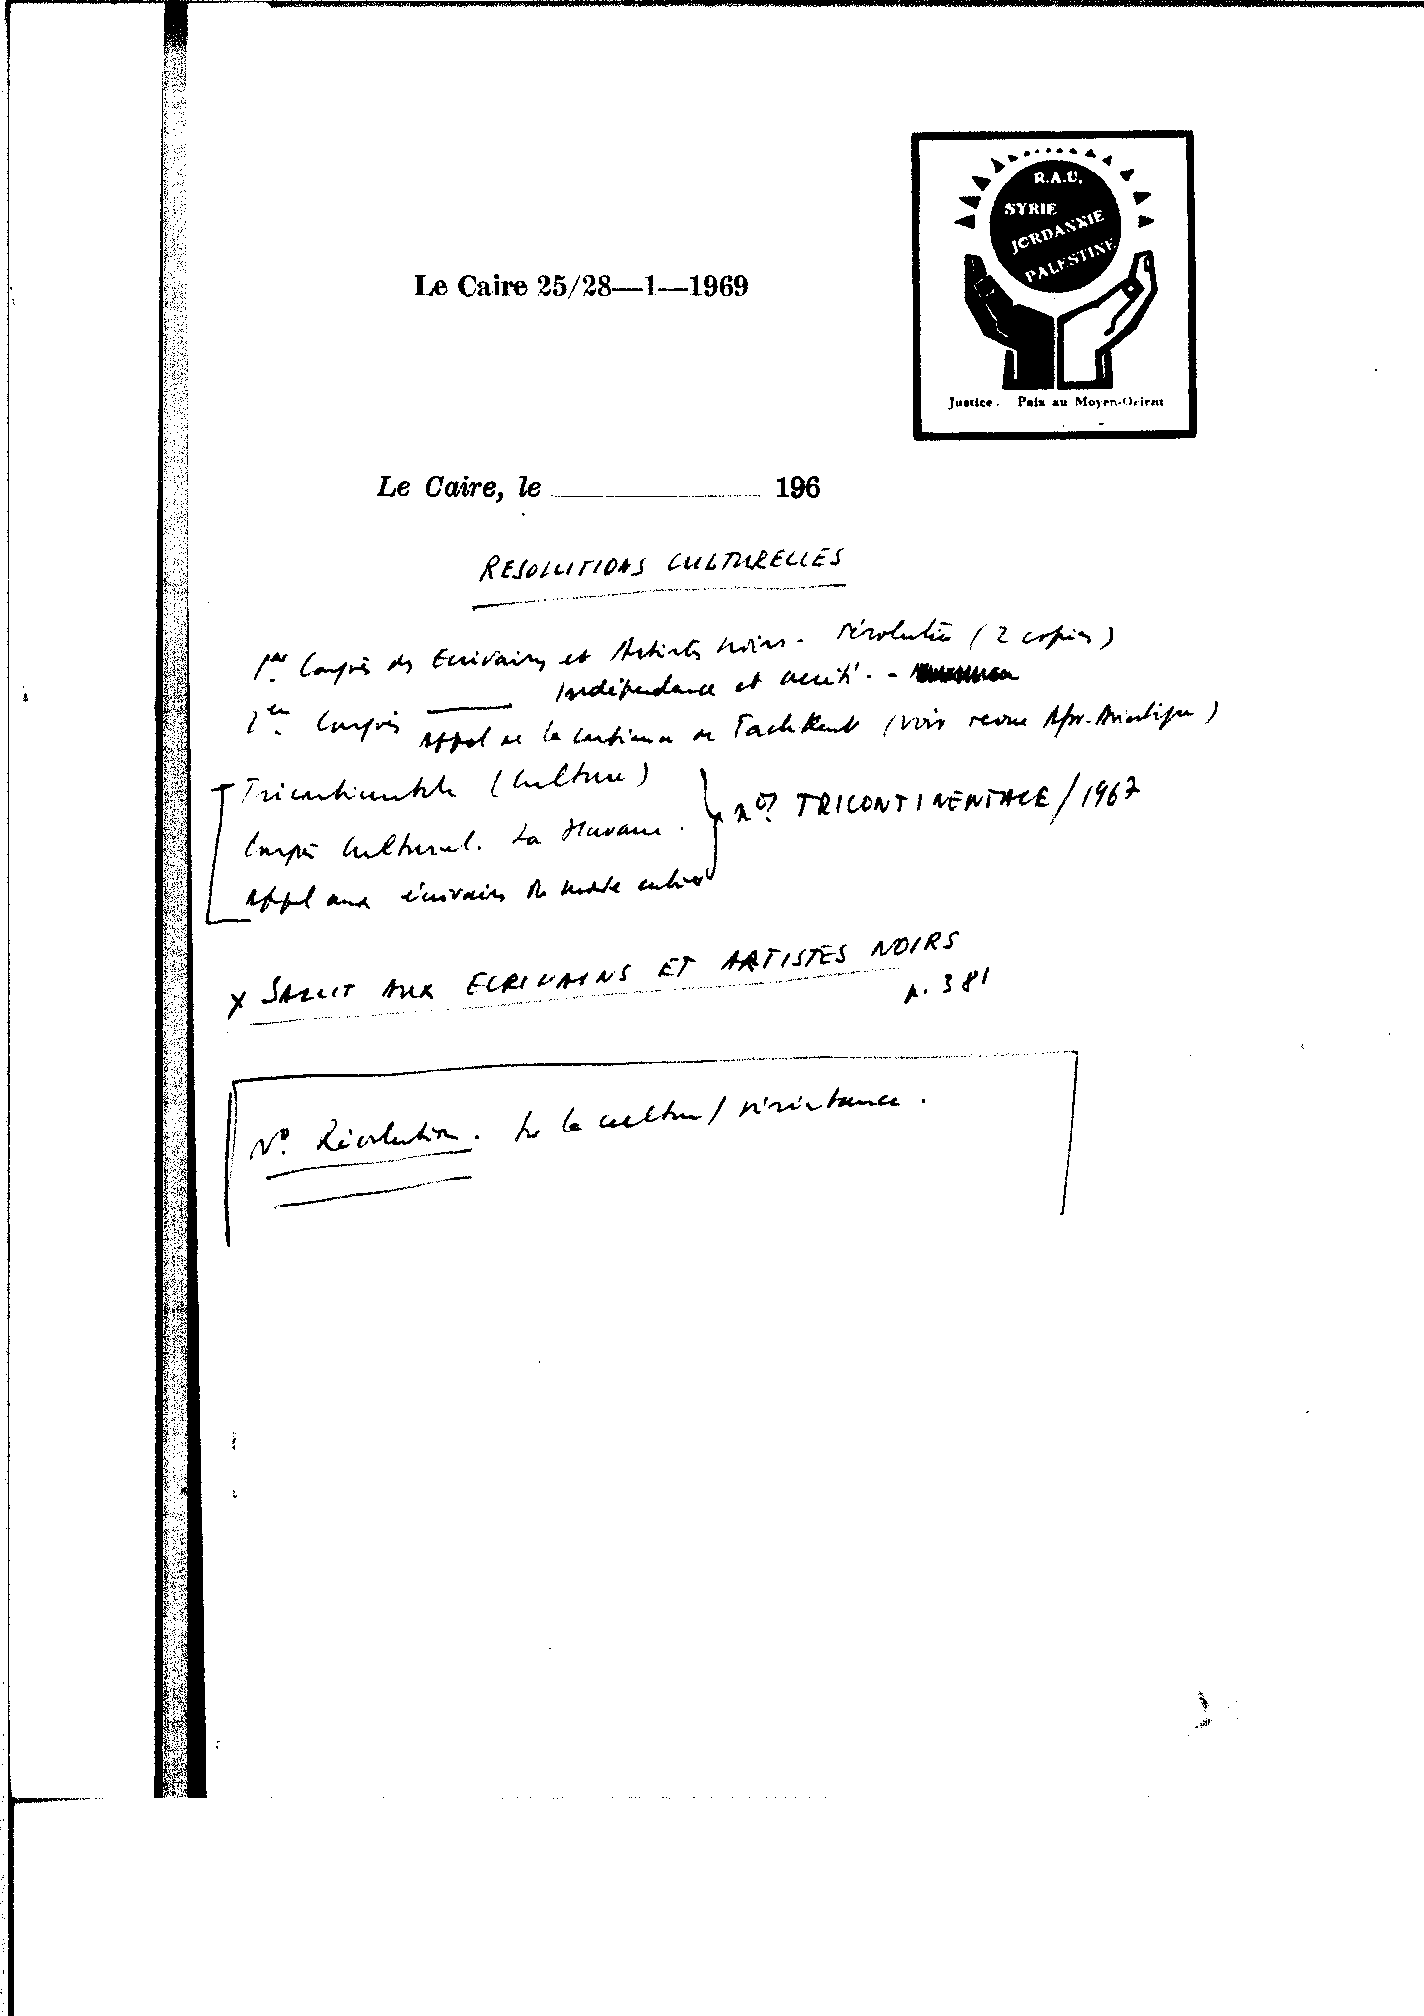 R.A.U.
SYRIE
JORDANNIE
PALESTINE
Justice. Paix au Moyen-Orient
Le Caire 25/28—1—1969
Le Caire, le 196
RESOLUTIONS CULTURELLES
1er Congrès des Ecrivains et Artistes Noirs - résolution (2 copies)
Indépendance et unité. -
2e Congrès
Appel de la conférence de Tachkent (voir revue Afro-Asiatique)
Tricontinentale (Culture)
Congrès Culturel. La Havane.
Appel aux écrivains du monde entier
no. TRICONTINENTALE/1967
x SALUT AUX ECRIVAINS ET ARTISTES NOIRS
p. 381
No. Révolution. Sur la culture/résistance.